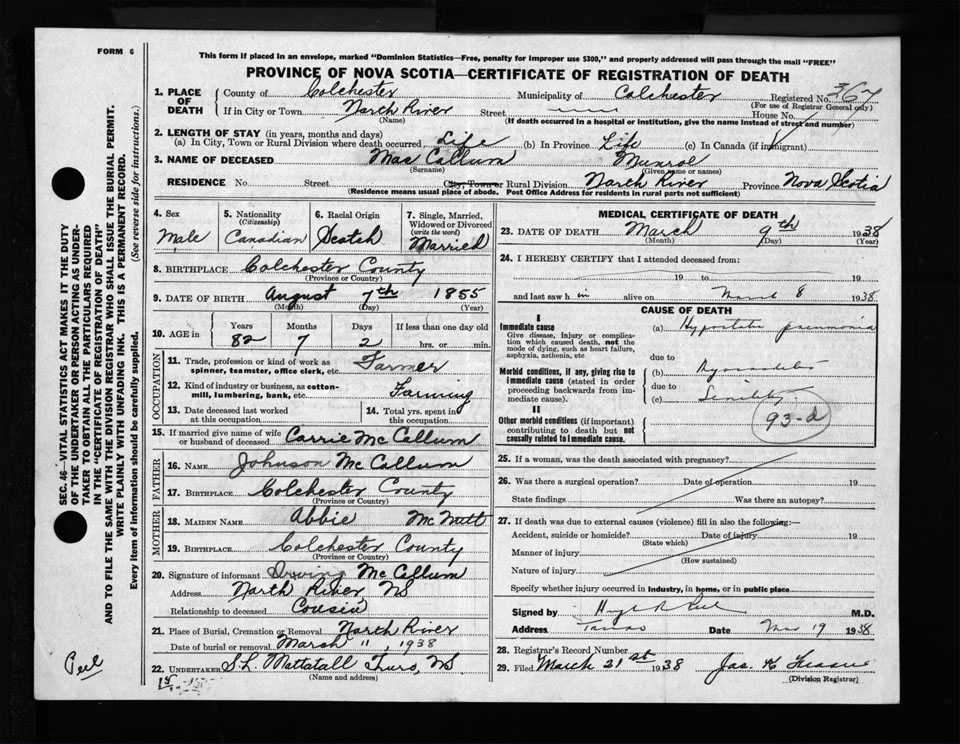 FORM 6
This form if placed in an envelope, marked "Dominion Statistics—Free, penalty for improper use $300," and properly addressed will pass through the mail "FREE"
PROVINCE OF NOVA SCOTIA—CERTIFICATE OF REGISTRATION OF DEATH
1. PLACE OF DEATH County of Colchester Municipality of Colchester Registered No. 367
(For use of Registrar General only)
If in City or Town North River Street House No.
(Name) (If death occurred in a hospital or institution, give the name instead of street and number)
2. LENGTH OF STAY (in years, months and days)
(a) In City, Town or Rural Division where death occurred Life (b) In Province Life (c) In Canada (if immigrant)
3. NAME OF DECEASED Mac Callum Munroe
(Surname) (Given name or names)
RESIDENCE No. Street City, Town or Rural Division North River Province Nova Scotia
(Residence means usual place of abode. Post Office Address for residents in rural parts not sufficient)
4. Sex Male
5. Nationality (Citizenship) Canadian
6. Racial Origin Scotch
7. Single, Married, Widowed or Divorced (write the word) Married
8. BIRTHPLACE Colchester County
(Province or Country)
9. DATE OF BIRTH August 7th 1855
(Month) (Day) (Year)
10. AGE in Years Months Days If less than one day old
82 7 2 hrs. or min.
OCCUPATION
11. Trade, profession or kind of work as spinner, teamster, office clerk, etc. Farmer
12. Kind of industry or business, as cotton-mill, lumbering, bank, etc. Farming
13. Date deceased last worked at this occupation
14. Total yrs. spent in this occupation
15. If married give name of wife or husband of deceased Carrie McCallum
FATHER
16. NAME Johnson McCallum
17. BIRTHPLACE Colchester County
(Province or Country)
MOTHER
18. MAIDEN NAME Abbie McNutt
19. BIRTHPLACE Colchester County
(Province or Country)
20. Signature of informant Irving McCallum
Address North River, NS
Relationship to deceased Cousin
21. Place of Burial, Cremation or Removal North River
Date of burial or removal March 11, 1938
22. UNDERTAKER S.L. Mattatall Truro, NS
(Name and address)
MEDICAL CERTIFICATE OF DEATH
23. DATE OF DEATH March 9th 1938
(Month) (Day) (Year)
24. I HEREBY CERTIFY that I attended deceased from:
19 to 19
and last saw h im alive on March 8 1938
CAUSE OF DEATH
I
Immediate cause
Give disease, injury or complication which caused death, not the mode of dying, such as heart failure, asphyxia, asthenia, etc
(a) Hypostatic pneumonia
due to
Morbid conditions, if any, giving rise to immediate cause (stated in order proceeding backwards from immediate cause).
(b) Myocarditis
due to
(c) Senility
93-d
II
Other morbid conditions (if important) contributing to death but not causally related to immediate cause.
25. If a woman, was the death associated with pregnancy?
26. Was there a surgical operation? Date of operation 19
State findings Was there an autopsy?
27. If death was due to external causes (violence) fill in also the following:—
Accident, suicide or homicide? Date of injury 19
(State which)
Manner of injury
(How sustained)
Nature of injury
Specify whether injury occurred in industry, in home, or in public place
Signed by M.D.
Address Truro Date Mar 19 1938
28. Registrar's Record Number
29. Filed March 21st 1938 Jas. K
(Division Registrar)
SEC. 46—VITAL STATISTICS ACT MAKES IT THE DUTY
OF THE UNDERTAKER OR PERSON ACTING AS UNDER-
TAKER TO OBTAIN ALL THE PARTICULARS REQUIRED
IN THE "CERTIFICATE OF REGISTRATION OF DEATH"
AND TO FILE THE SAME WITH THE DIVISION REGISTRAR WHO SHALL ISSUE THE BURIAL PERMIT.
WRITE PLAINLY WITH UNFADING INK. THIS IS A PERMANENT RECORD.
Every item of information should be carefully supplied. (See reverse side for instructions.)